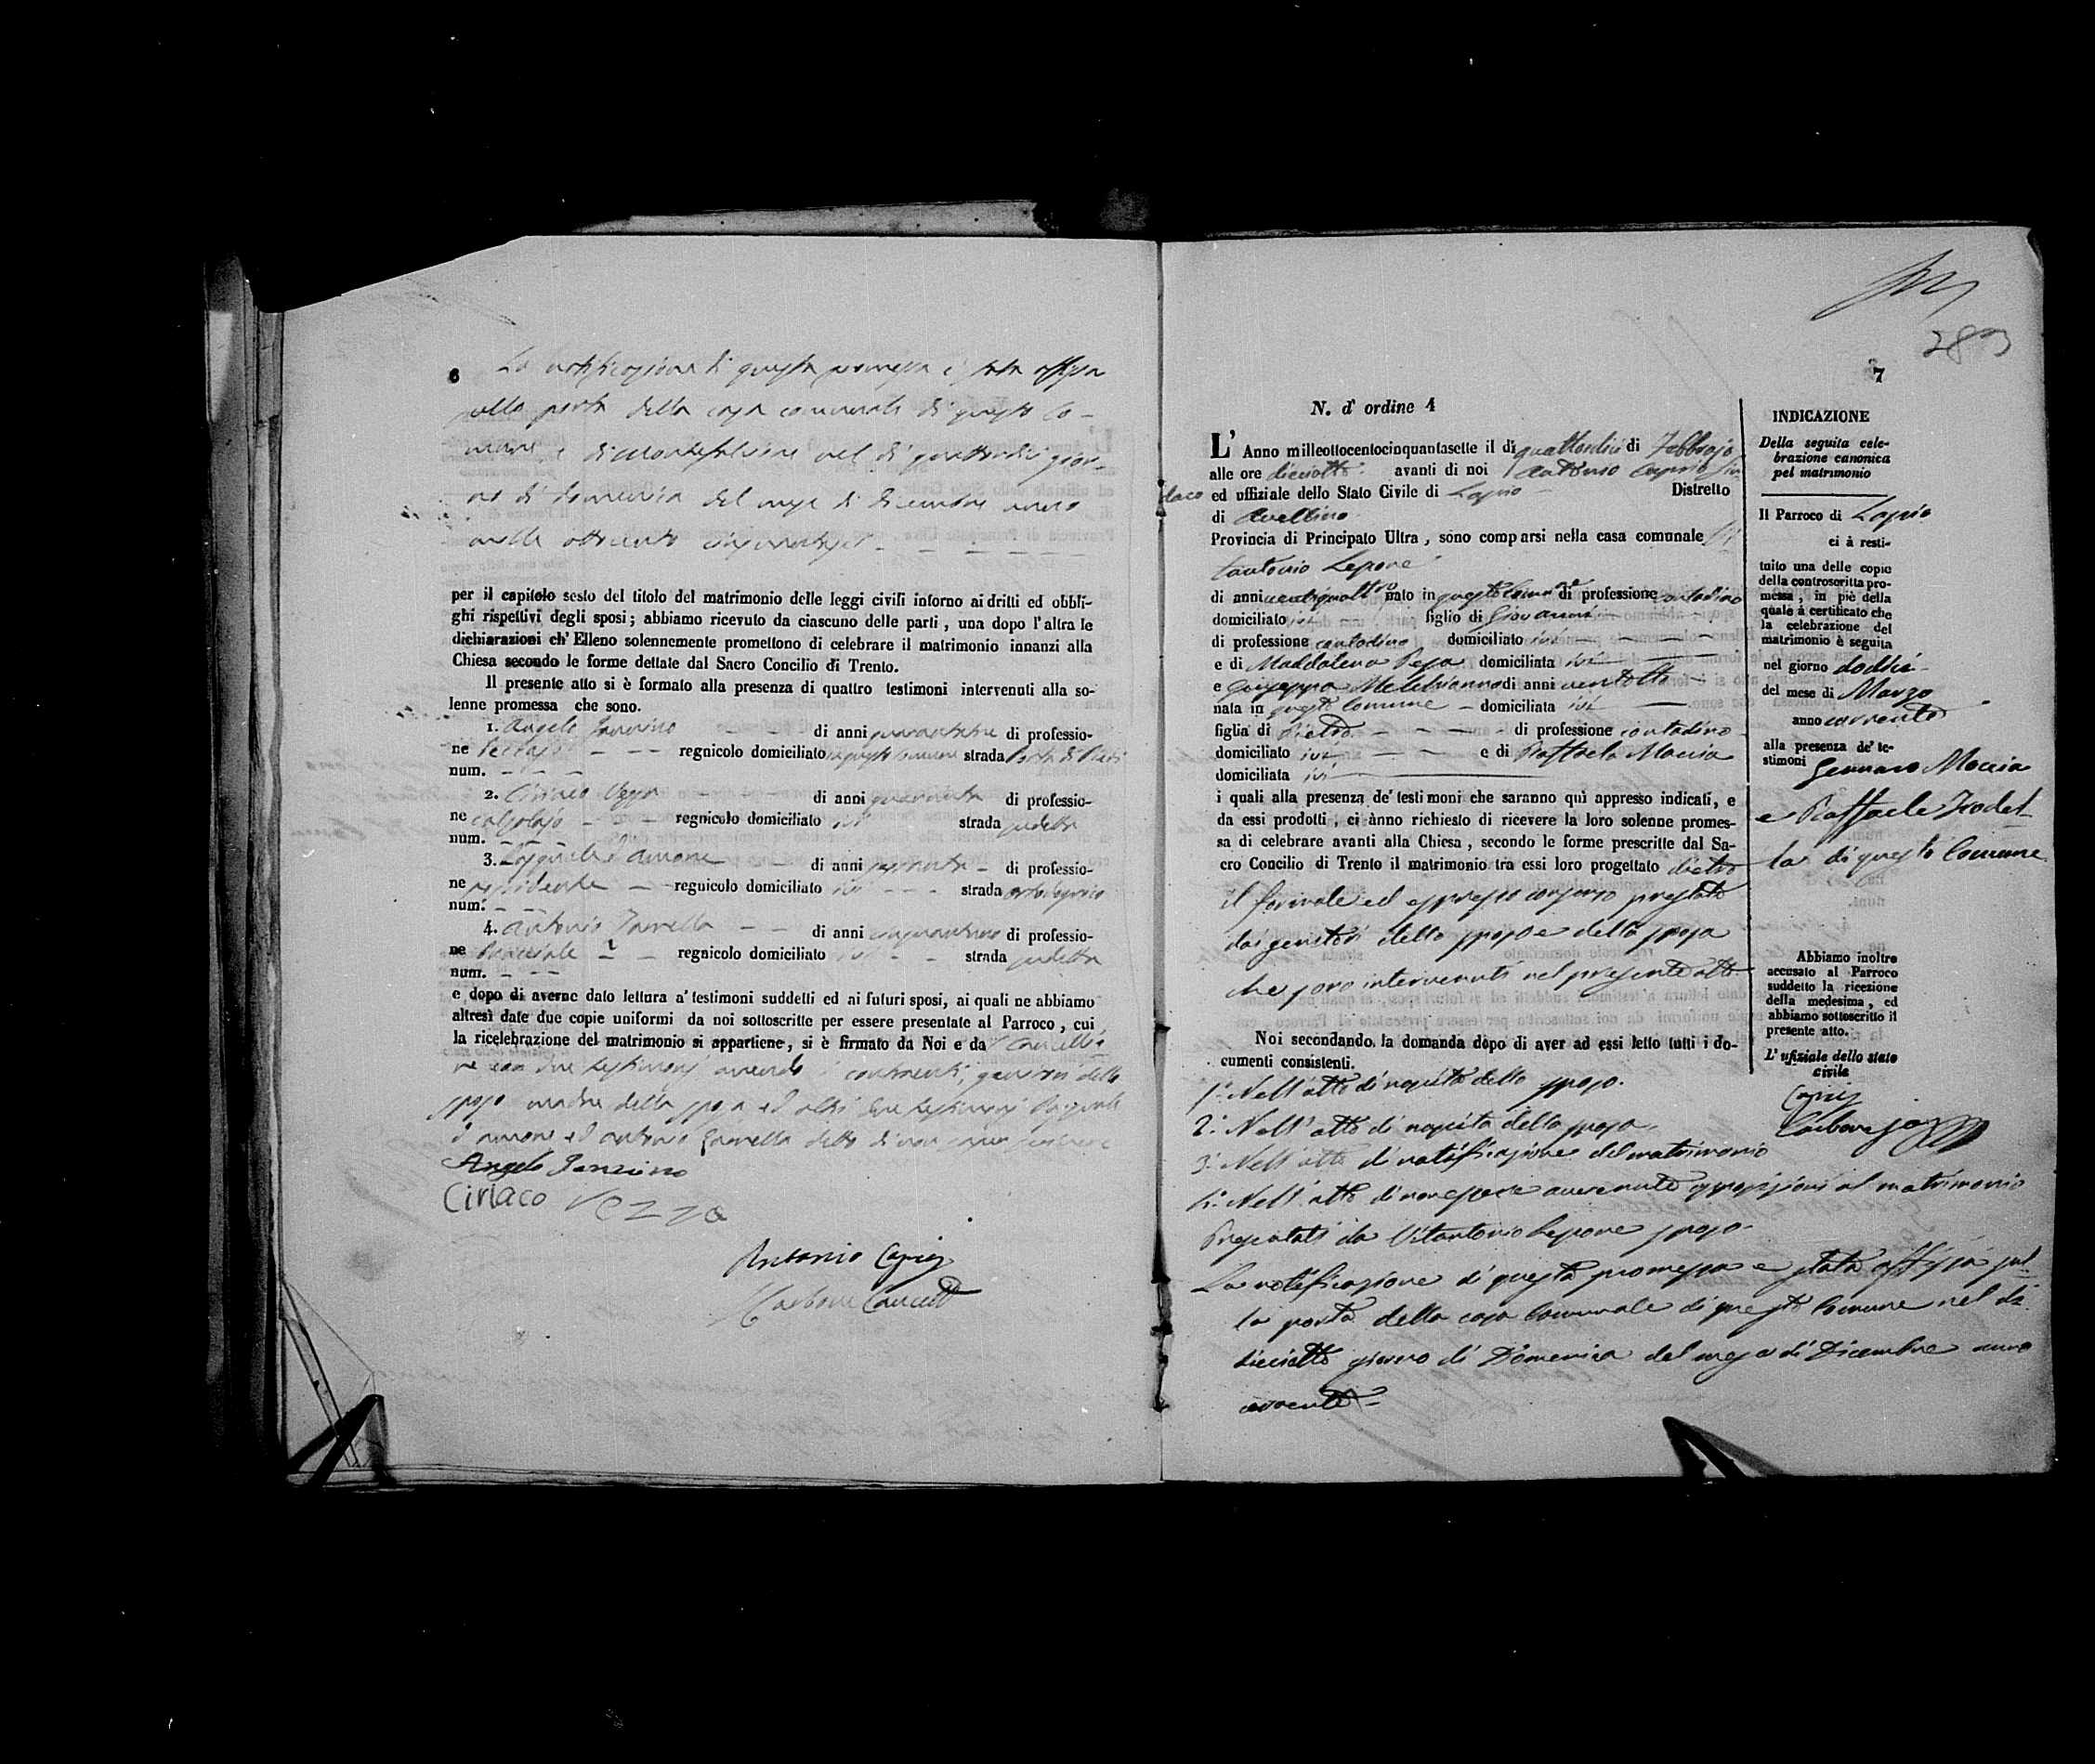 6 La notificazione di questa promessa è stata affissa
alla porta della casa comunale di questo Co-
mune, e di Montefalcione nel dì quattordici gior-
no di domenica del mese di Dicembre anno
mille ottocento cinquantasei
per il capitolo sesto del titolo del matrimonio delle leggi civili intorno ai dritti ed obbli-
ghi rispettivi degli sposi; abbiamo ricevuto da ciascuno delle parti, una dopo l'altra le
dichiarazioni ch'Elleno solennemente promettono di celebrare il matrimonio innanzi alla
Chiesa secondo le forme dettate dal Sacro Concilio di Trento.
Il presente atto si è formato alla presenza di quattro testimoni intervenuti alla so-
lenne promessa che sono.
1. Angelo di anni di professio-
ne regnicolo domiciliato in questo Comune strada
num.
2. Ciriaco Vezza di anni quaranta di professio-
ne calzolajo regnicolo domiciliato ivi strada sudetta
num.
3. Pasquale d'Amone di anni sessanta di professio-
ne possidente regnicolo domiciliato ivi strada
num.
4. Antonio di anni di professio-
ne Bracciale regnicolo domiciliato ivi strada sudetta
num.
e dopo di averne dato lettura a' testimoni suddetti ed ai futuri sposi, ai quali ne abbiamo
altresì date due copie uniformi da noi sottoscritte per essere presentate al Parroco, cui
la ricelebrazione del matrimonio si appartiene, si è firmato da Noi e da Cancellie-
re con due testimonj avendo i contraenti, genitori dello
sposo madre della sposa ed altri due testimonj Pasquale
d'Amone ed Antonio detto di non saper scrivere
Angelo
Ciriaco Vezza
Antonio Caprio
Carbone Cancell
283
7
N. d'ordine 4
L'Anno milleottocentocinquantasette il dì quattordici di Febbrajo
alle ore dieciotto avanti di noi Antonio Caprio Sin-
daco ed uffiziale dello Stato Civile di Lapio Distretto
di Avellino
Provincia di Principato Ultra, sono comparsi nella casa comunale Vi
tantonio Lepore
di anni ventiquattro nato in questo Comune di professione contadino
domiciliato ivi figlio di Giovanni
di professione contadino domiciliato ivi
e di Maddalena Pepa domiciliata ivi
e Giuseppa Melchionno di anni ventotto
nata in questo Comune domiciliata ivi
figlia di Pietro di professione contadino
domiciliato ivi e di Raffaela Moccia
domiciliata ivi
i quali alla presenza de' testimoni che saranno quì appresso indicati, e
da essi prodotti, ci ànno richiesto di ricevere la loro solenne promes-
sa di celebrare avanti alla Chiesa, secondo le forme prescritte dal Sa-
cro Concilio di Trento il matrimonio tra essi loro progettato dietro
il formale ed espresso consenso prestato
dai genitori dello sposo e della sposa
che sono intervenuti nel presente atto
Noi secondando la domanda dopo di aver ad essi letto tutti i do-
cumenti consistenti.
1.° Nell'atto di nascita dello sposo.
2.° Nell'atto di nascita della sposa.
3.° Nell'atto di notificazione del matrimonio
4.° Nell'atto di non essere avvenute opposizioni al matrimonio
Presentati da Vitantonio Lepore sposo
La notificazione di questa promessa è stata affissa sul-
la porta della casa Comunale di questo Comune nel dì
dieciotto giorno di Domenica del mese di Dicembre anno
corrente
INDICAZIONE
Della seguita cele-
brazione canonica
pel matrimonio
Il Parroco di Lapio
ci à resti-
tuito una delle copie
della controscritta pro-
messa, in piè della
quale à certificato che
la celebrazione del
matrimonio è seguita
nel giorno dodici
del mese di Marzo
anno corrente
alla presenza de' te-
stimoni Gennaro Moccia
e Raffaele
la di questo Comune
Abbiamo inoltre
accusato al Parroco
suddetto la ricezione
della medesima, ed
abbiamo sottoscritto il
presente atto.
L'ufiziale dello stato
civile
Caprio
Carbone